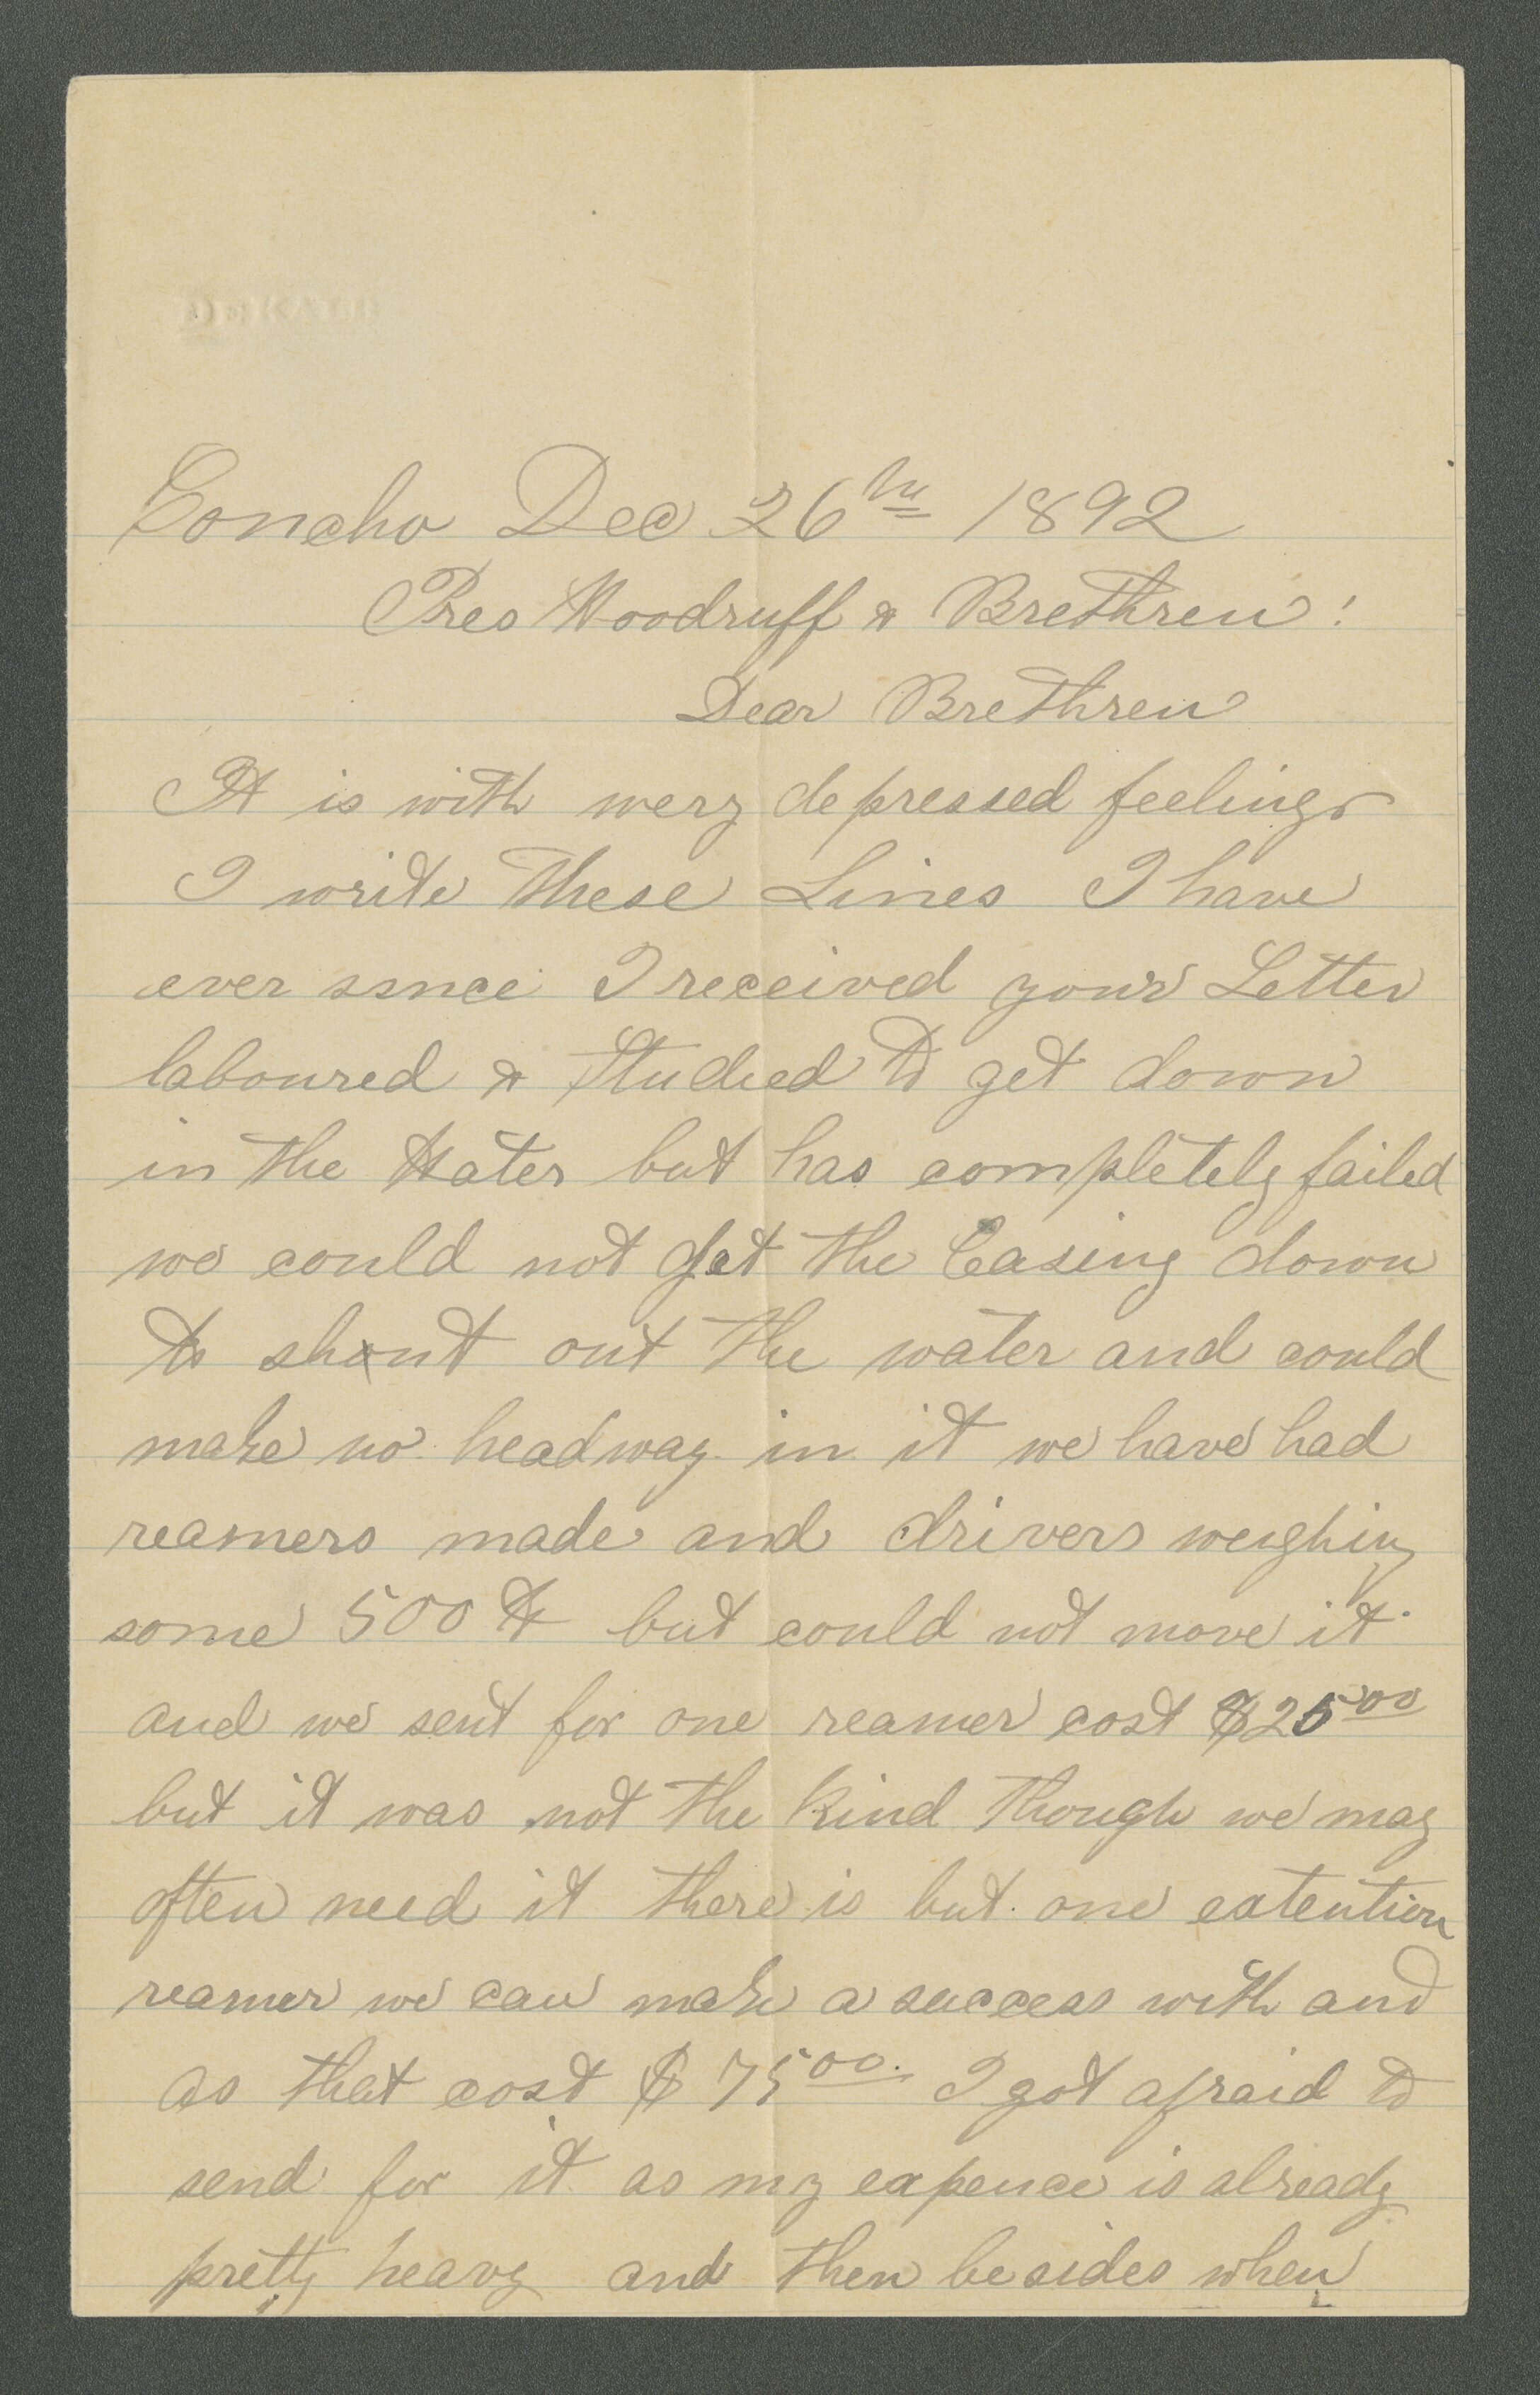 Concho Dec 26th 1892
Pres Woodruff & Brethren!
Dear Brethren
It is with wery depressed feelings
I write these Lines I have
ever since I received your Letter
laboured & Studied to get down
in the Water but has completely failed
we could not Get the Casing down
to shut out the water and could
make no headway in it we have had
reamers made and drivers weighing
some 500 ℔ but could not move it
and we sent for one reamer cost $25.00
but it was not the kind though we may
often need it there is but one extention
reamer we can make a success with and
as that cost $75.00. I got afraid to
send for it as my expence is already
pretty heavy and then besides when